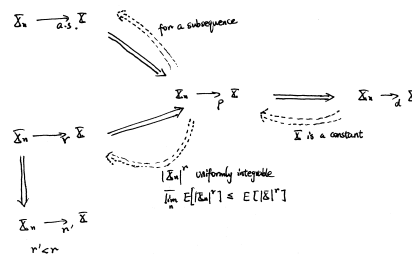 X_n →_{a.s.} X
for a subsequence
X_n →_p X
X_n →_d X
X is a constant
X_n →_r X
|X_n|^r uniformly integrable
\overline{lim}_n E[|X_n|^r] ≤ E[|X|^r]
X_n →_{r'} X
r' < r